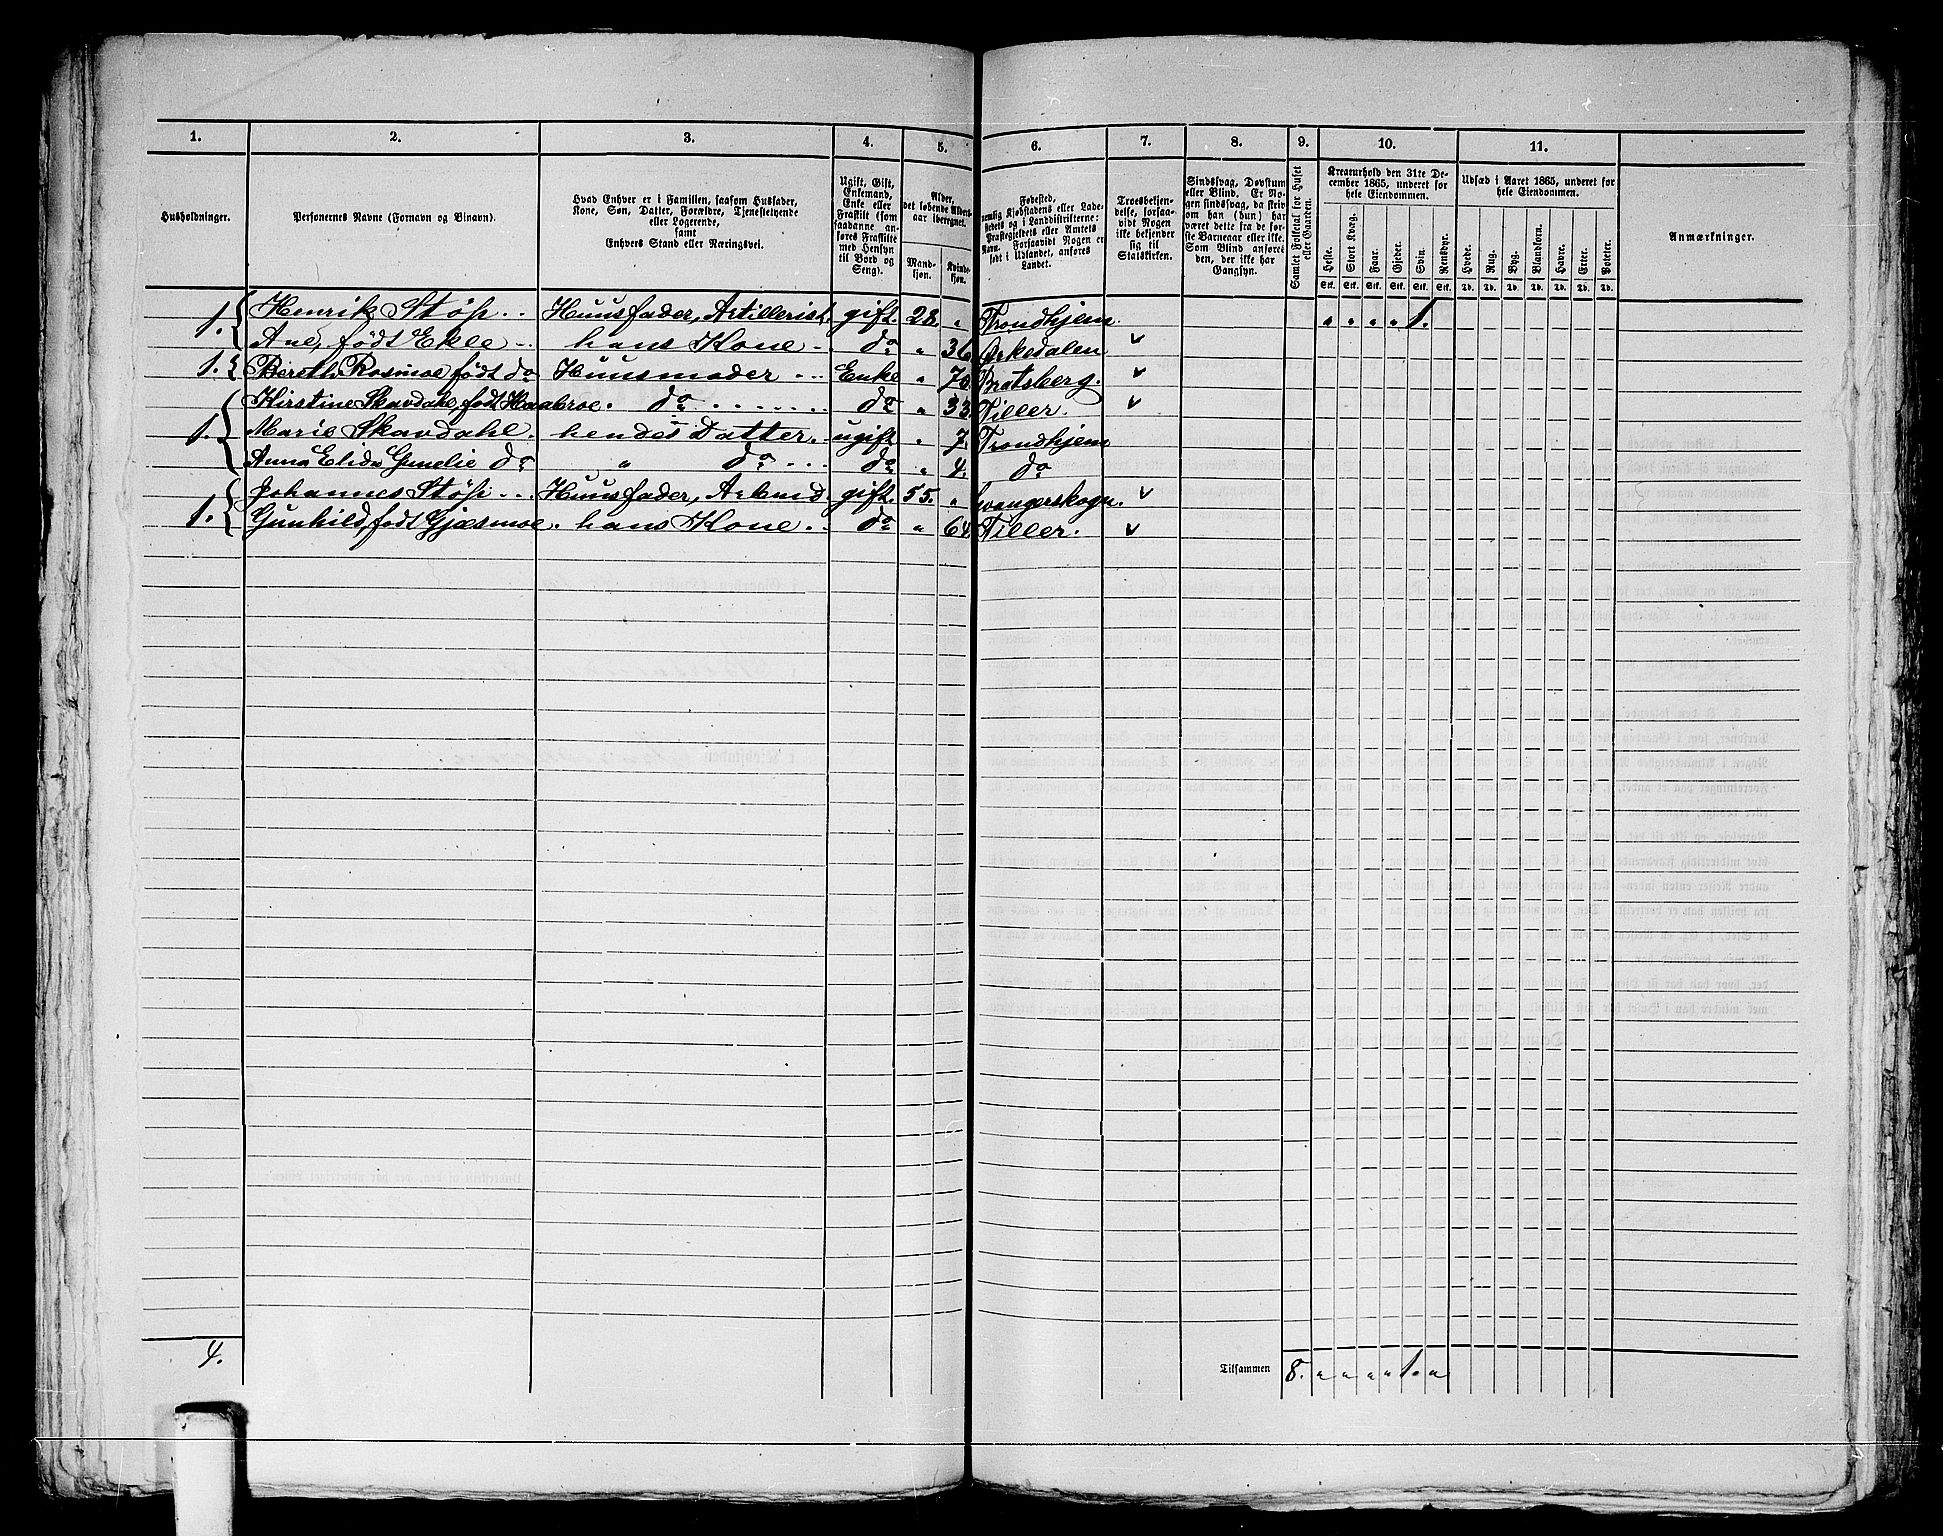 1. 2. 3. 4. 5. 6. 7. 8. 9. 10. 11.
Husholdninger.
Personernes Navne (Fornavn og Binavn).
Hvad Enhver er i Familien, saasom Husfader,
Kone, Søn, Datter, Forældre, Tjenestetyende
eller Logerende,
samt
Enhvers Stand eller Næringsvei.
Ugift, Gift,
Enkemand,
Enke eller
Fraskilt (som
saadanne anføres
Fraskilte
med Hensyn
til Bord og
Seng).
Alder,
det løbende Alders-
aar iberegnet.
Mand-
kjøn.
Kvinde-
kjøn.
Fødested,
nemlig Kjøbstadens eller Lade-
stedets og i Landdistrikterne:
Præstegjeldets eller Amtets
Navn. Forsaavidt Nogen er
født i Udlandet, anføres
Landet.
Troesbekjen-
delse, forsaa-
vidt Nogen
ikke bekjender
sig til
Statskirken.
Sindssvag, Døvstum
eller Blind. Er No-
gen sindssvag, da skriv
om han (hun) har
været dette fra de før-
ste Barneaar eller ikke.
Som Blind anføres
den, der ikke har
Gangsyn.
Samlet Folketal for Huset
eller Gaarden.
Kreaturhold den 31te De-
cember 1865, underet for
hele Eiendommen.
Heste. Stort Kvæg. Faar. Gjeder. Svin. Rensdyr.
Stk. Stk. Stk. Stk. Stk. Stk.
Udsæd i Aaret 1865, underet for
hele Eiendommen.
Hvede. Rug. Byg. Blandkorn. Havre. Erter. Poteter.
Td. Td. Td. Td. Td. Td. Td.
Anmærkninger.
1. Henrik Støp .. Huusfader, Artillerist. gift. 28. „ Trondhjem. „ „ „ „ 1.
Ane, født Ekle .. hans Kone .. do „ 36. Ørkedalen
1. Bereth Rosmoe født do Huusmoder ... Enke „ 70. Bratsberg.
Kirstine Skavdahl, født Haabroe. do ....... do „ 33. Tiller.
1. Marie Skavdahl. hendes Datter.. ugift „ 7. Trondhjem
Anna Elida Gmelie do „ do ... do „ 4. do
Johannes Støp ... Huusfader, Arbeid. gift. 55. „
1. Gunhild, født Gjæsmoe. hans Kone .. do „ 64. Tiller.
4. Tilsammen 8. „ „ „ „ 1. „